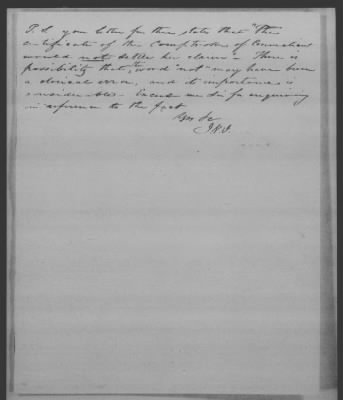 P.S. your letter further states that "The
certificate of the Comptroller of Connecticut
would not settle her claim - There is
possibility that the word "not" may have been
a clerical error, and its importance is
considerable - Excuse me Sir for enquiring
in reference to the fact
Yrs &c